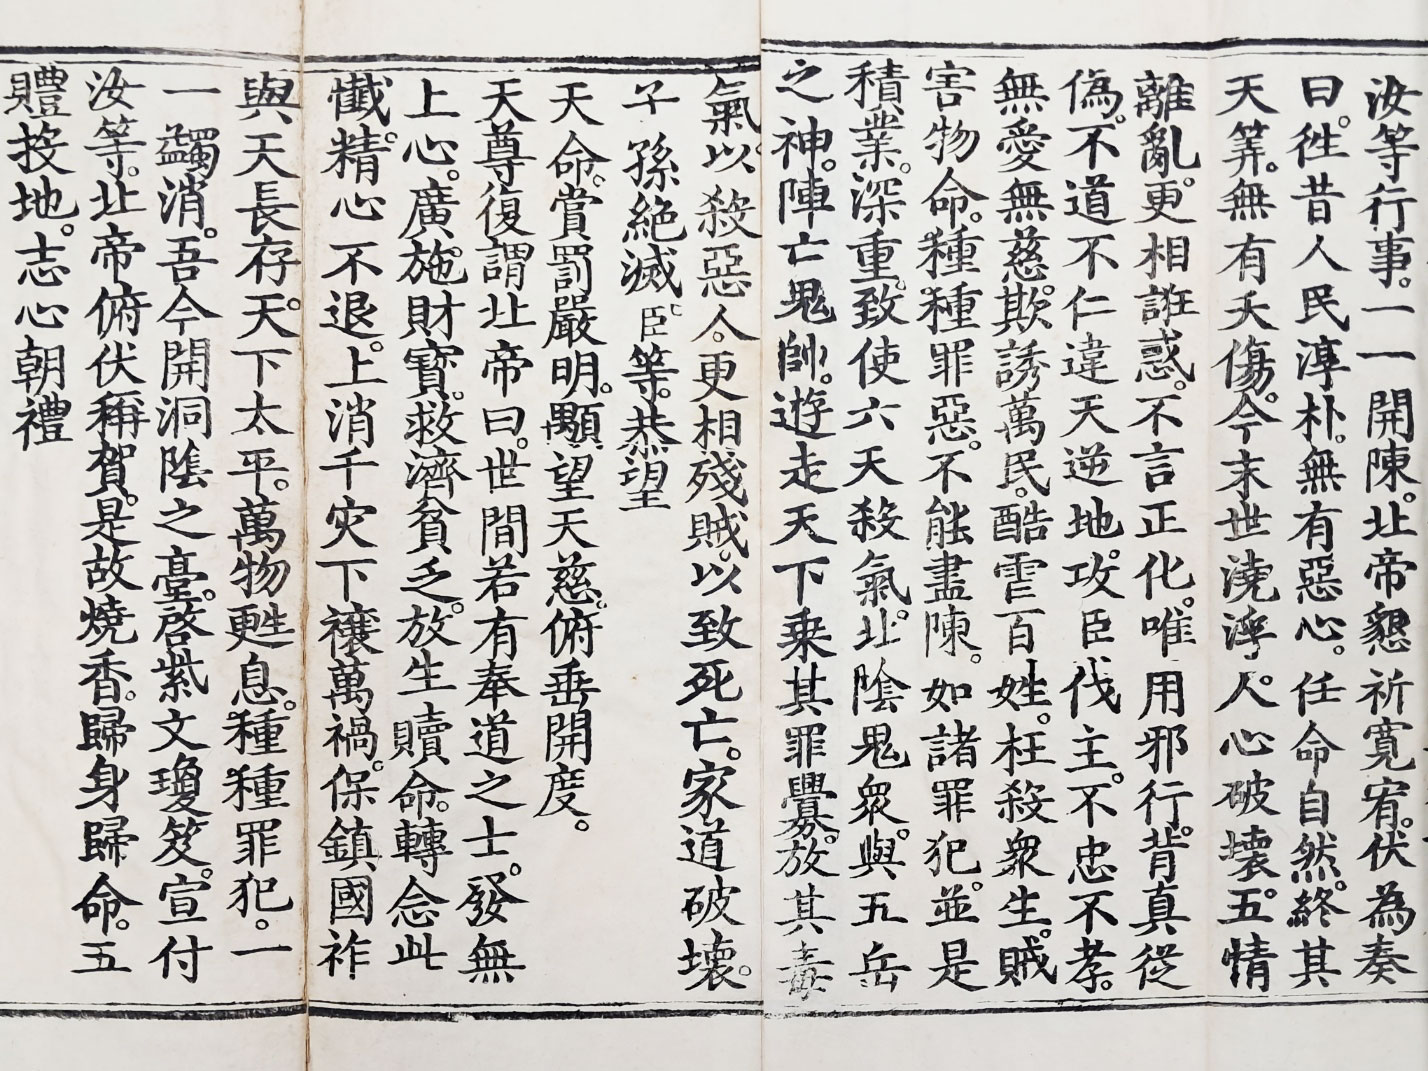 汝等行事。一一開陳。北帝懇祈寬宥。伏為奏
曰。徃昔人民淳朴。無有惡心。任命自然。終其
天筭。無有夭傷。今末世澆浮。人心破壞。五情
離亂。更相誑惑。不言正化。唯用邪行。背真從
偽。不道不仁違天逆地。攻臣伐主。不忠不孝。
無愛無慈。欺誘萬民。酷虐百姓。枉殺衆生。賊
害物命。種種罪惡。不能盡陳。如諸罪犯。並是
積業。深重。致使六天殺氣。北陰鬼衆。與五岳
之神。陣亡鬼帥。遊走天下乗其罪釁。放其毒
氣。以殺惡人。更相殘賊。以致死亡。家道破壞。
子孫絶滅臣等。恭望
天命。賞罰嚴明。顒望天慈。俯垂開度。
天尊復謂北帝曰。世間若有奉道之士。發無
上心。廣施財寳。救濟貧乏。放生贖命。轉念此
懺。精心不退。上消千灾下禳萬禍。保鎮國祚
與天長存。天下太平。萬物甦息。種種罪犯。一
一蠲消。吾今開洞陰之臺。啓紫文瓊笈。宣付
汝等。北帝俯伏稱賀。是故燒香。歸身歸命。五
體投地。志心朝禮